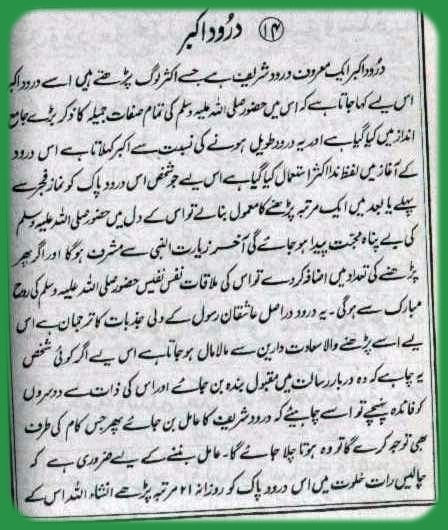 ۱۴ درود اکبر
درود اکبر ایک معروف درود شریف ہے جسے اکثر لوگ پڑھتے ہیں اسے درود اکبر
اس لیے کہا جاتا ہے کہ اس میں حضور صلی اللہ علیہ وسلم کی تمام صفات جمیلہ کا ذکر بڑے جامع
انداز میں کیا گیا ہے اور یہ درود طویل ہونے کی نسبت سے اکبر کہلاتا ہے اس درود
کے آغاز میں لفظ ندا اکثر استعمال کیا گیا ہے اس لیے جو شخص اس درود پاک کو نماز فجر سے
پہلے یا بعد میں ایک مرتبہ پڑھنے کا معمول بنالے تو اس کے دل میں حضور صلی اللہ علیہ وسلم
کی بے پناہ محبت پیدا ہو جائے گی آخر زیارت النبی سے مشرف ہوگا اور اگر پھر
پڑھنے کی تعداد میں اضافہ کر دے تو اس کی ملاقات نفس نفیس حضور صلی اللہ علیہ وسلم کی روح
مبارک سے ہوگی ۔ یہ درود دراصل عاشقان رسول کے دلی جذبات کا ترجمان ہے اس
لیے اسے پڑھنے والا سعادت دارین سے مالا مال ہو جاتا ہے اس لیے اگر کوئی شخص
یہ چاہے کہ وہ دربار رسالت میں مقبول بندہ بن جائے اور اس کی ذات سے دوسروں
کو فائدہ پہنچے تو اسے چاہیئے کہ درود شریف کا عامل بن جائے پھر جس کام کی طرف
بھی توجہ کرے گا تو وہ ہوتا چلا جائے گا۔ عامل بننے کے لیے ضروری ہے کہ
چالیس رات خلوت میں اس درود پاک کو روزانہ ۲۱ مرتبہ پڑھے انشاء اللہ اس کے